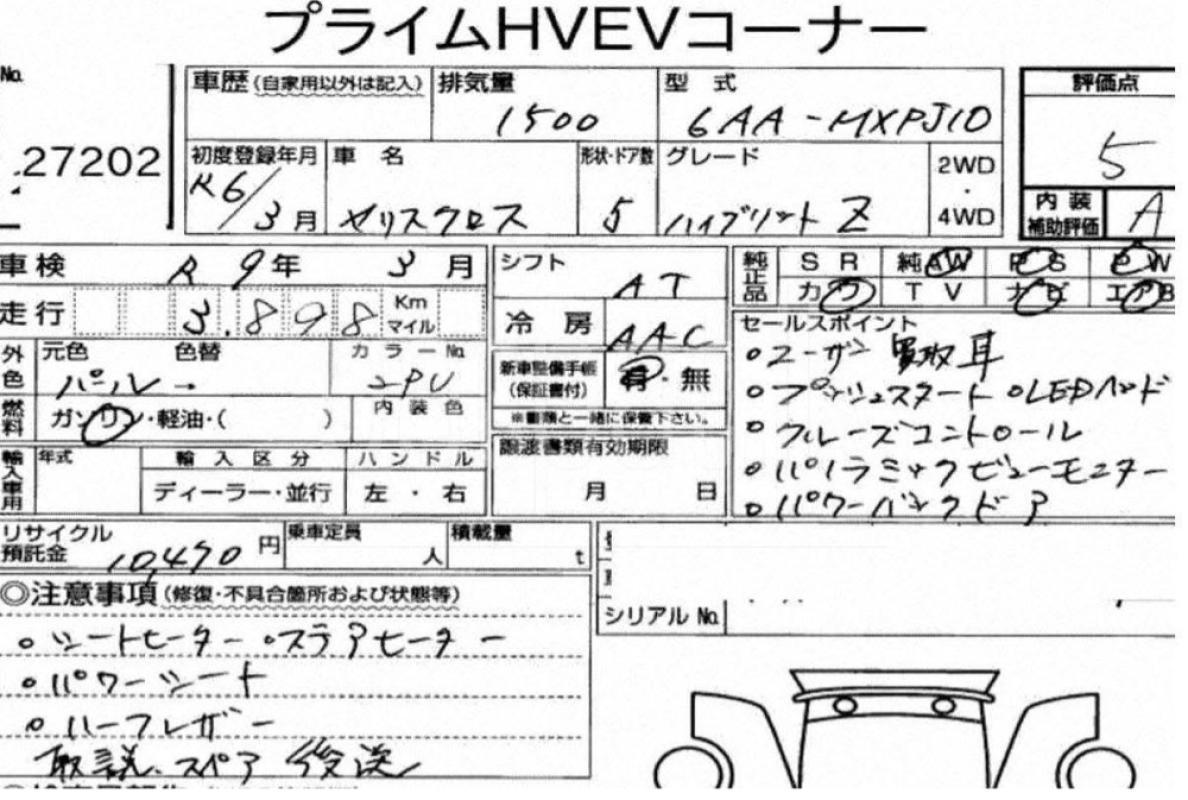 プライムHVEVコーナー
No.
27202
車歴(自家用以外は記入)
排気量
1500
型式
6AA-MXPJ10
評価点
5
初度登録年月
R6/3月
車名
ヤリスクロス
形状・ドア数
5
グレード
ハイブリットZ
2WD・4WD
内装補助評価
A
車検 R9年 3月
シフト
AT
純正品
SR 純AW PS PW
カワ TV ナビ エアB
走行 3,898 Km マイル
冷房
AAC
セールスポイント
○ユーザー買取車
○プッシュスタート ○LEDヘッド
○クルーズコントロール
○パノラミックビューモニター
○パワーバックドア
外色
元色 色替
パール
カラーNo.
2PU
新車整備手帳(保証書付)
有・無
※書類と一緒に保管下さい。
燃料
ガソリン・軽油・( )
内装色
譲渡書類有効期限
月 日
輸入車用
年式
輸入区分
ディーラー・並行
ハンドル
左・右
リサイクル預託金 10,490円
乗車定員
人
積載量
t
シリアルNo.
◎注意事項(修復・不具合箇所および状態等)
○シートヒーター ○ステアヒーター
○パワーシート
○ハーフレザー
取説、スペア 後送